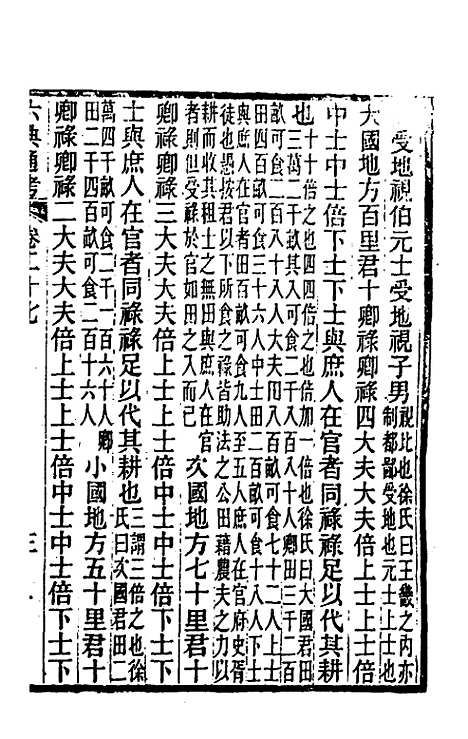 受地視伯元士受地視子男
視比也徐氏曰王畿之内亦
制都鄙受地也元士上士也
大國地方百里君十卿祿卿祿四大夫大夫倍上士上士倍
中士中士倍下士下士與庶人在官者同祿祿足以代其耕
也
十十倍之也四四倍之也倍加一倍也徐氏曰大國君田
三萬二千畝其入可食二千八百八十人卿田三千二百
畝可食二百八十八人大夫田八百畝可食七十二人上士
田四百畝可食三十六人中士田二百畝可食十八人下士
與庶人在官者田百畝可食九人至五人庶人在官府史胥
徒也愚按君以下所食之祿皆助法之公田藉農夫之力以
耕而收其租士之無田與庶人在官
者則但受祿於官如田之入而已
次國地方七十里君十
卿祿卿祿三大夫大夫倍上士上士倍中士中士倍下士下
士與庶人在官者同祿祿足以代其耕也
三謂三倍之也徐
氏曰次國君田二
萬四千畝可食二千一百六十人卿
田二千四百畝可食二百十六人
小國地方五十里君十
卿祿卿祿二大夫大夫倍上士上士倍中士中士倍下士下
六典通考
卷二十七
三